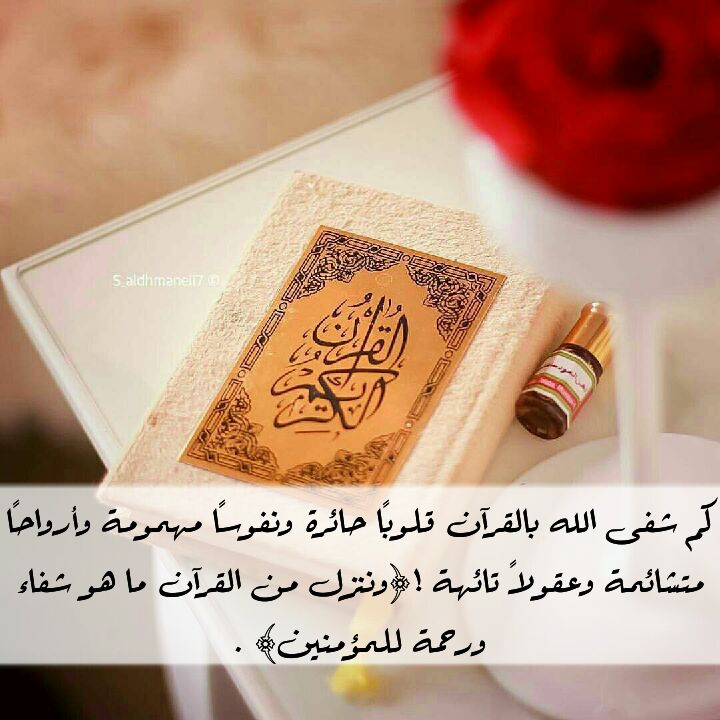 S_aldhmaneil7 ©
القرآن
الكريم
كم شفى الله بالقرآن قلوبًا حائرة ونفوساً مهمومة وأرواحًا
متشائمة وعقولاً تائهة !﴿وننزل من القرآن ما هو شفاء
ورحمة للمؤمنين﴾ .